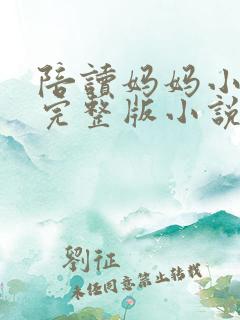 陪讀妈妈小
完整版小說
劉征
未经同意禁止转载